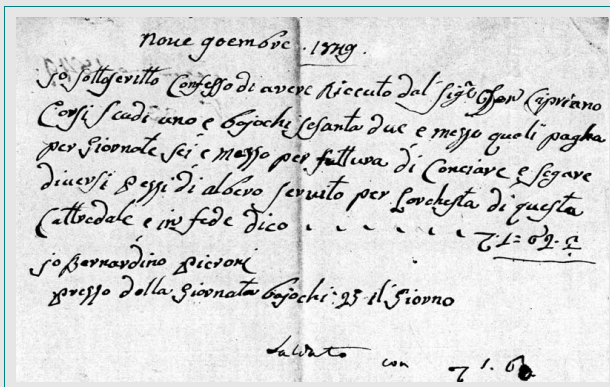 Noue goembre . 1749.
Jo sottoscritto Confesso di avere Riceuto dal Sigr Cipriano
Corsi scudi uno e bajochi sesanta due e mezzo quali pagha
per giornate sei e mezzo per fattura di Conciare e segare
diversi Pezzi di albero servito per Lorchesta di questa
Cattredale e in fede dico
Jo Bernardino Pieroni
Prezzo della Giornata bajochi: 25 il Giorno
Saldato con 1. 60